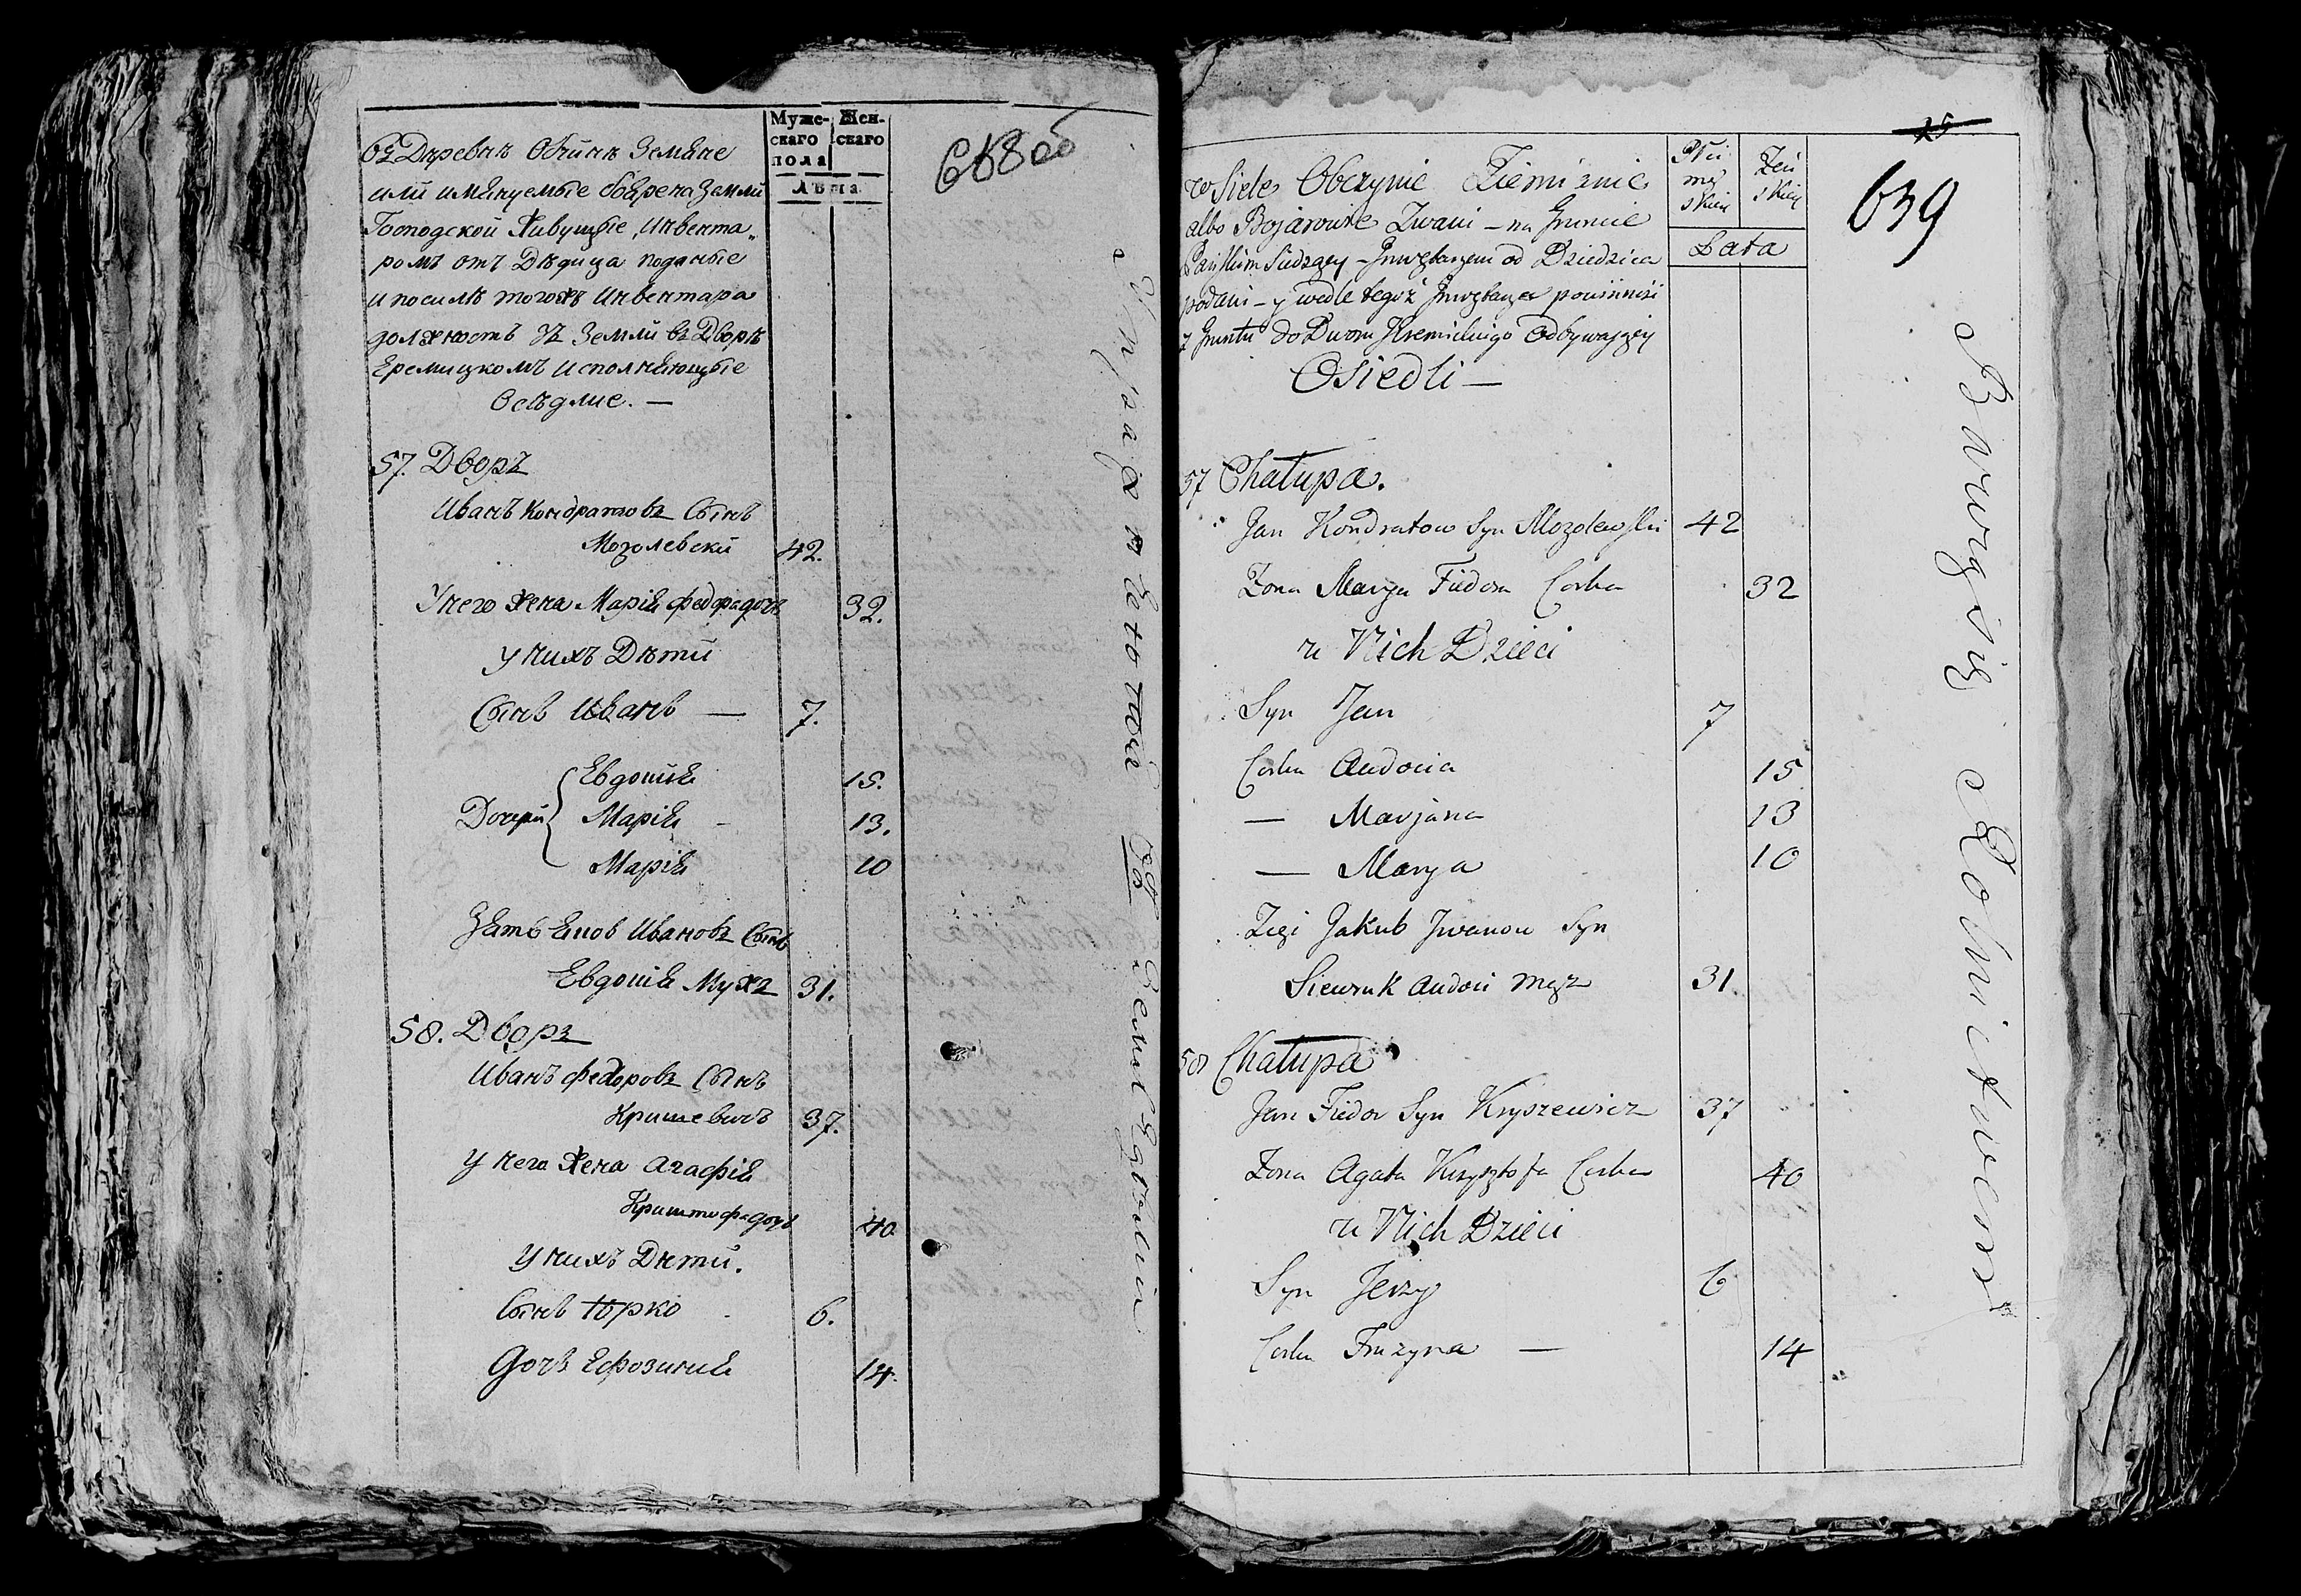 Муже-
скаго
пола
Жен-
скаго
Лѣта
638 об
Въ Деревнѣ Обчинѣ Земяне
или имянуемые бояре на Земли
Господской Живущые, Инвента„
ромъ отъ Дѣдица поданые
и посилѣ тогожъ Инвентара
должность зъ Земли въ Дворѣ
Еремицкомъ исполняющые
Осѣдлие. —
57. Дворъ
Иванъ Кондратовъ Сынъ
Мозолевски 42.
У него Жена Марія Федора дочь 32.
у нихъ Дѣти
Сынъ Иванъ — 7.
Дочери
Евдокія 15.
Марія - 13.
Марія 10
Зять Ивановъ Сынъ
Евдокіи Мужъ 31.
58. Дворъ
Иванъ Федоровъ Сынъ
Кришевичъ 37.
у него Жена Агафія
Криштофа дочь 40
У нихъ Дѣти.
Сынъ Юрко 6.
Дочь Ефрозинія 14.
25
639
w Siele Obczynie Ziemianie
albo Bojarowie Zwani — na Gruncie
Pańskim Siedzący — Inwentarzem od Dziedzica
podani — y wedle tegoż Inwentarza powinność
z Gruntu do Dworu Jeremickiego Odbywający
Osiedli —
Mę
skiey
Żeń
skiey
Lata
57 Chałupa.
Jan Kondratow Syn Mozolewski 42
Żona Marya Fiedora Corka 32
u Nich Dzieci
Syn Jan 7
Corka Audocia 15
— Marjana 13
— Marya 10
Zięć Jakub Iwanow Syn
Siewruk Audoci mąż 31
58 Chałupa
Jan Fiedor Syn Kryszewicz 37
Żona Agata Krysztofa Corka 40
u Nich Dzieci
Syn Jerzy 6
Corka Fruzyna — 14